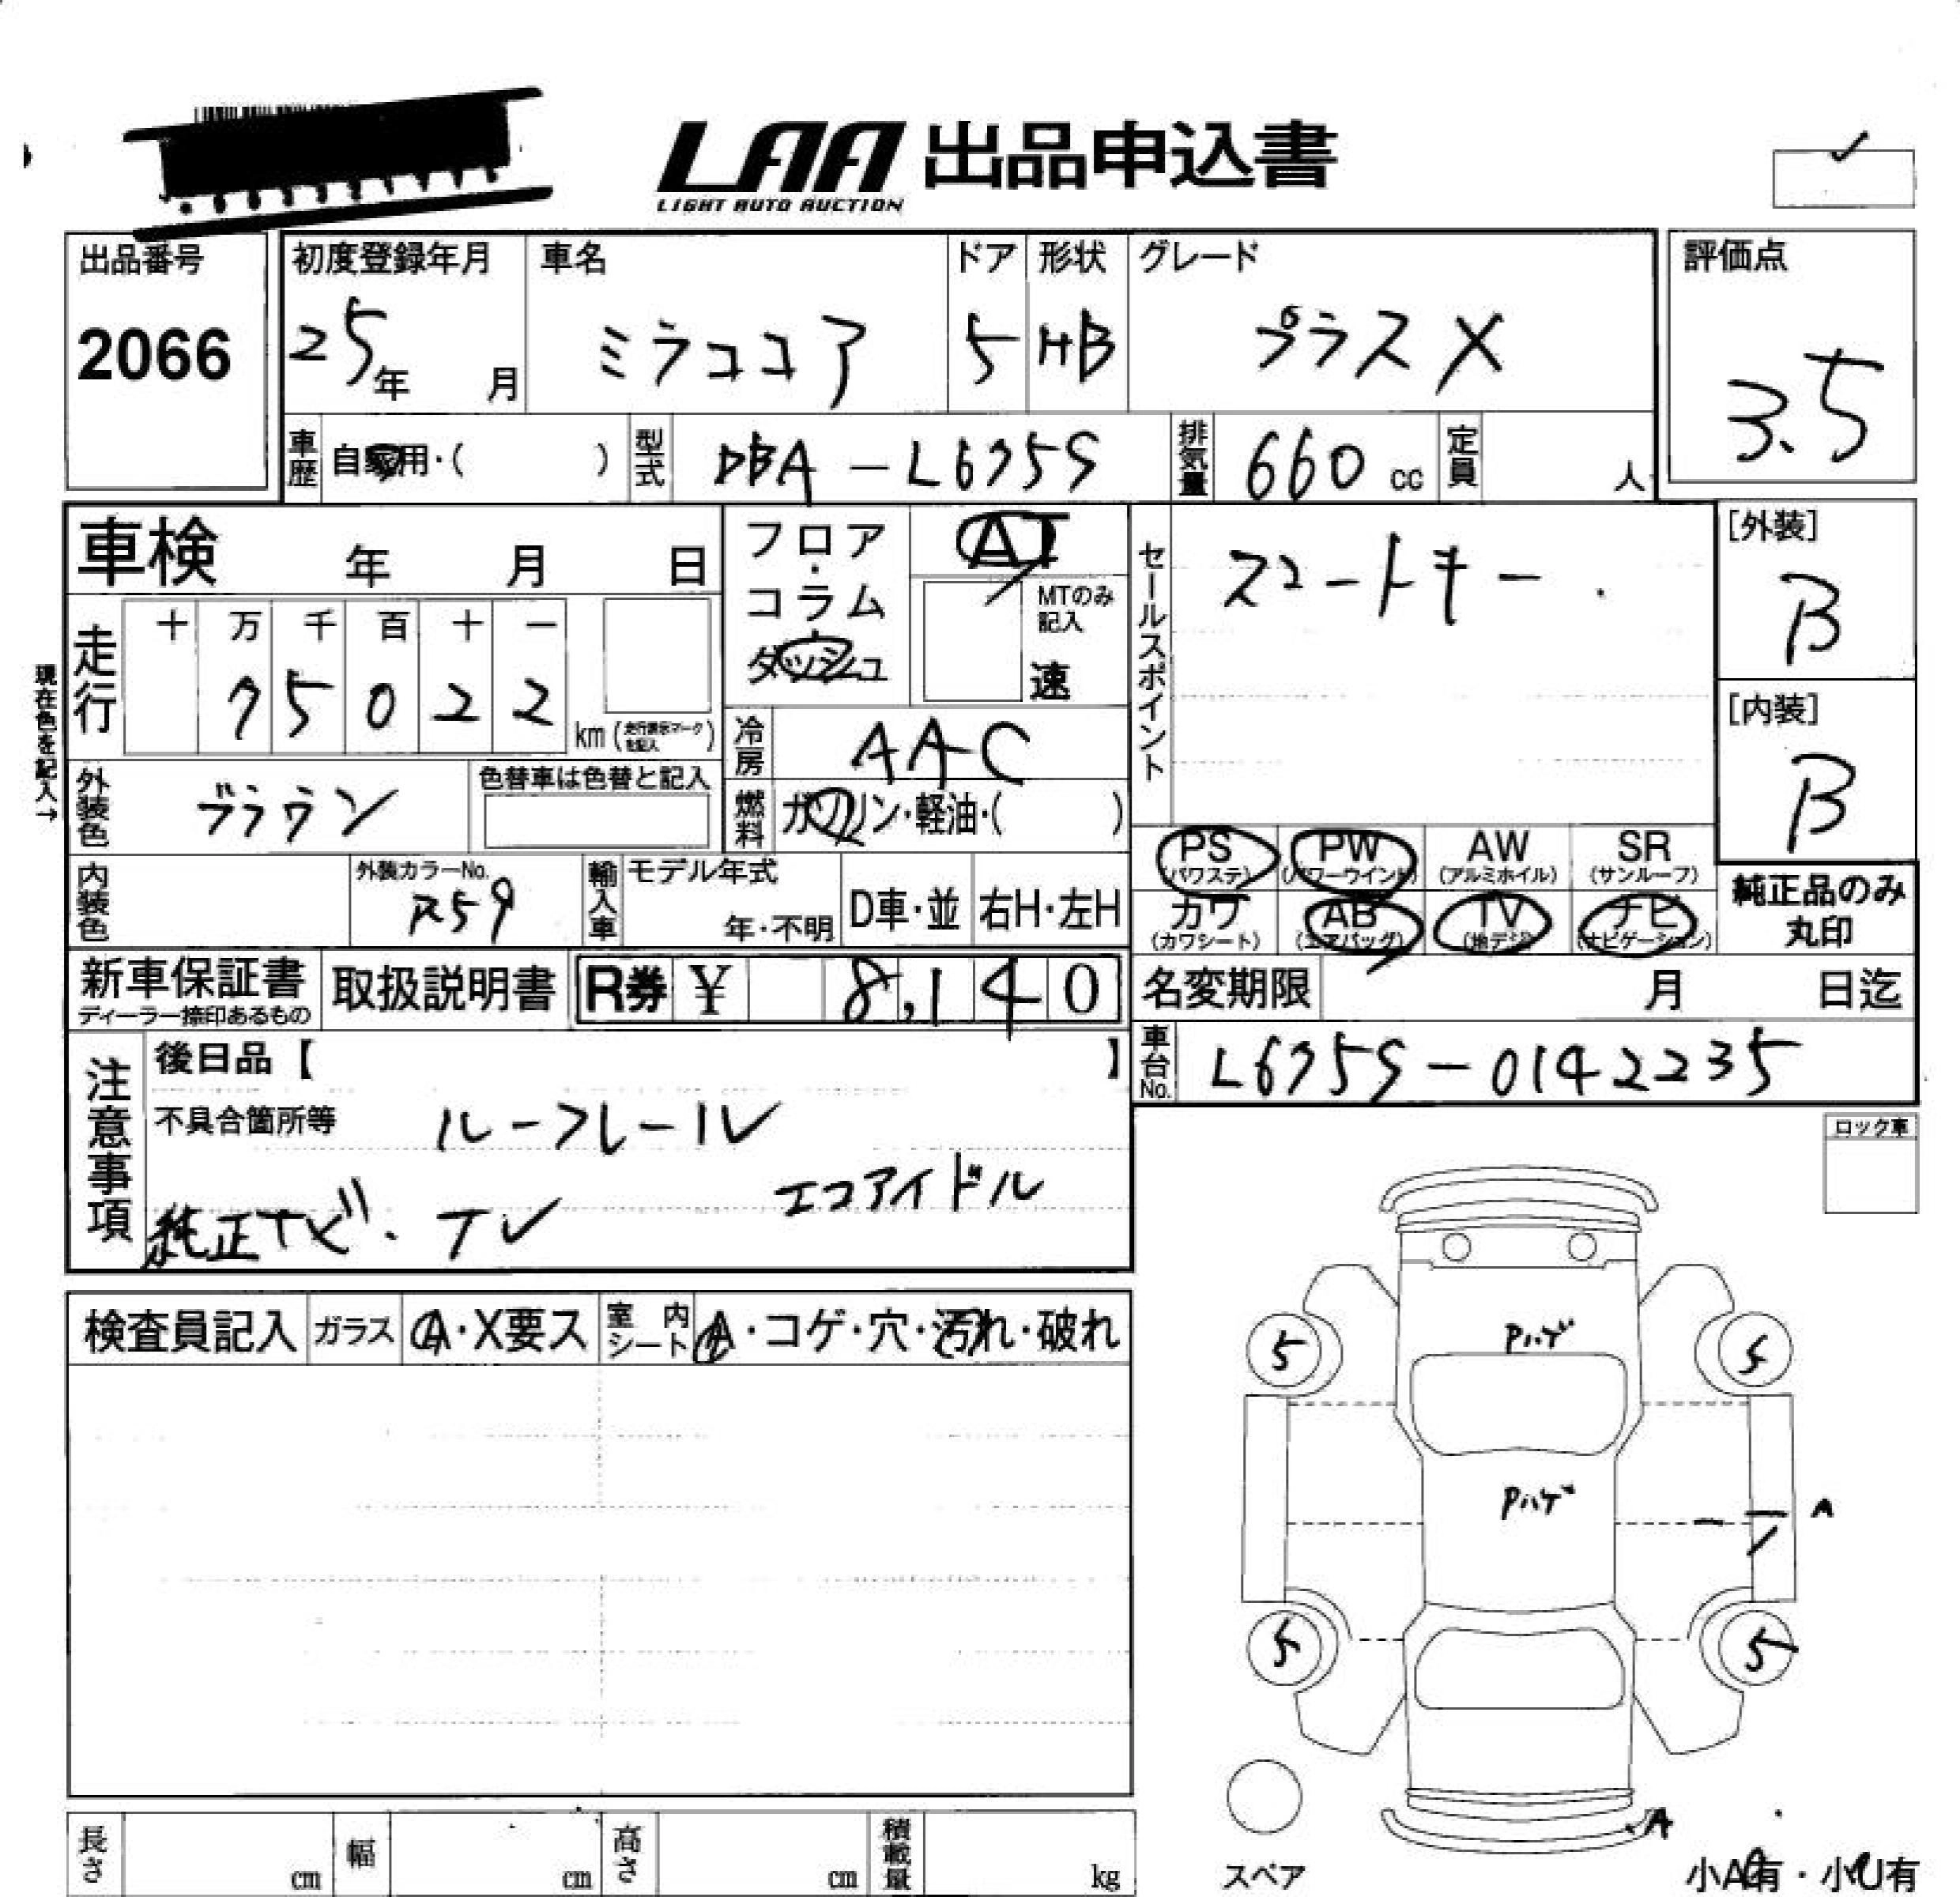 LAA 出品申込書
LIGHT AUTO AUCTION
出品番号 初度登録年月 車名 ドア 形状 グレード 評価点
2066 25年 月 ミラココア 5 HB プラスX 3.5
車歴 自家用・( ) 型式 DBA-L675S 排気量 660cc 定員 人
車検 年 月 日
フロア・コラム・ダッシュ
AT
MTのみ記入
速
セールスポイント
スマートキー
[外装]
B
[内装]
B
現在色を記入→
走行 十 万 千 百 十 一
75022 km (走行表示マークを記入)
冷房 AAC
外装色 ブラウン 色替車は色替と記入
燃料 ガソリン・軽油・( )
PS (パワステ) PW (パワーウインド) AW (アルミホイル) SR (サンルーフ)
カワ (カワシート) AB (エアバッグ) TV (地デジ) ナビ (ナビゲーション)
純正品のみ丸印
内装色 外装カラーNo. R59 輸入車 モデル年式 年・不明 D車・並 右H・左H
新車保証書 ディーラー捺印あるもの 取扱説明書 R券 ¥ 8,140
名変期限 月 日迄
車台No. L675S-0142235
注意事項
後日品【 】
不具合箇所等 ルーフレール
エコアイドル
純正ナビ・TV
ロック車
検査員記入 ガラス A・X要ス 室内シート A・コゲ・穴・汚れ・破れ
Pハゲ
5 5
Pハゲ
A
5 5
A
スペア
小A有・小U有
長さ cm 幅 cm 高さ cm 積載量 kg